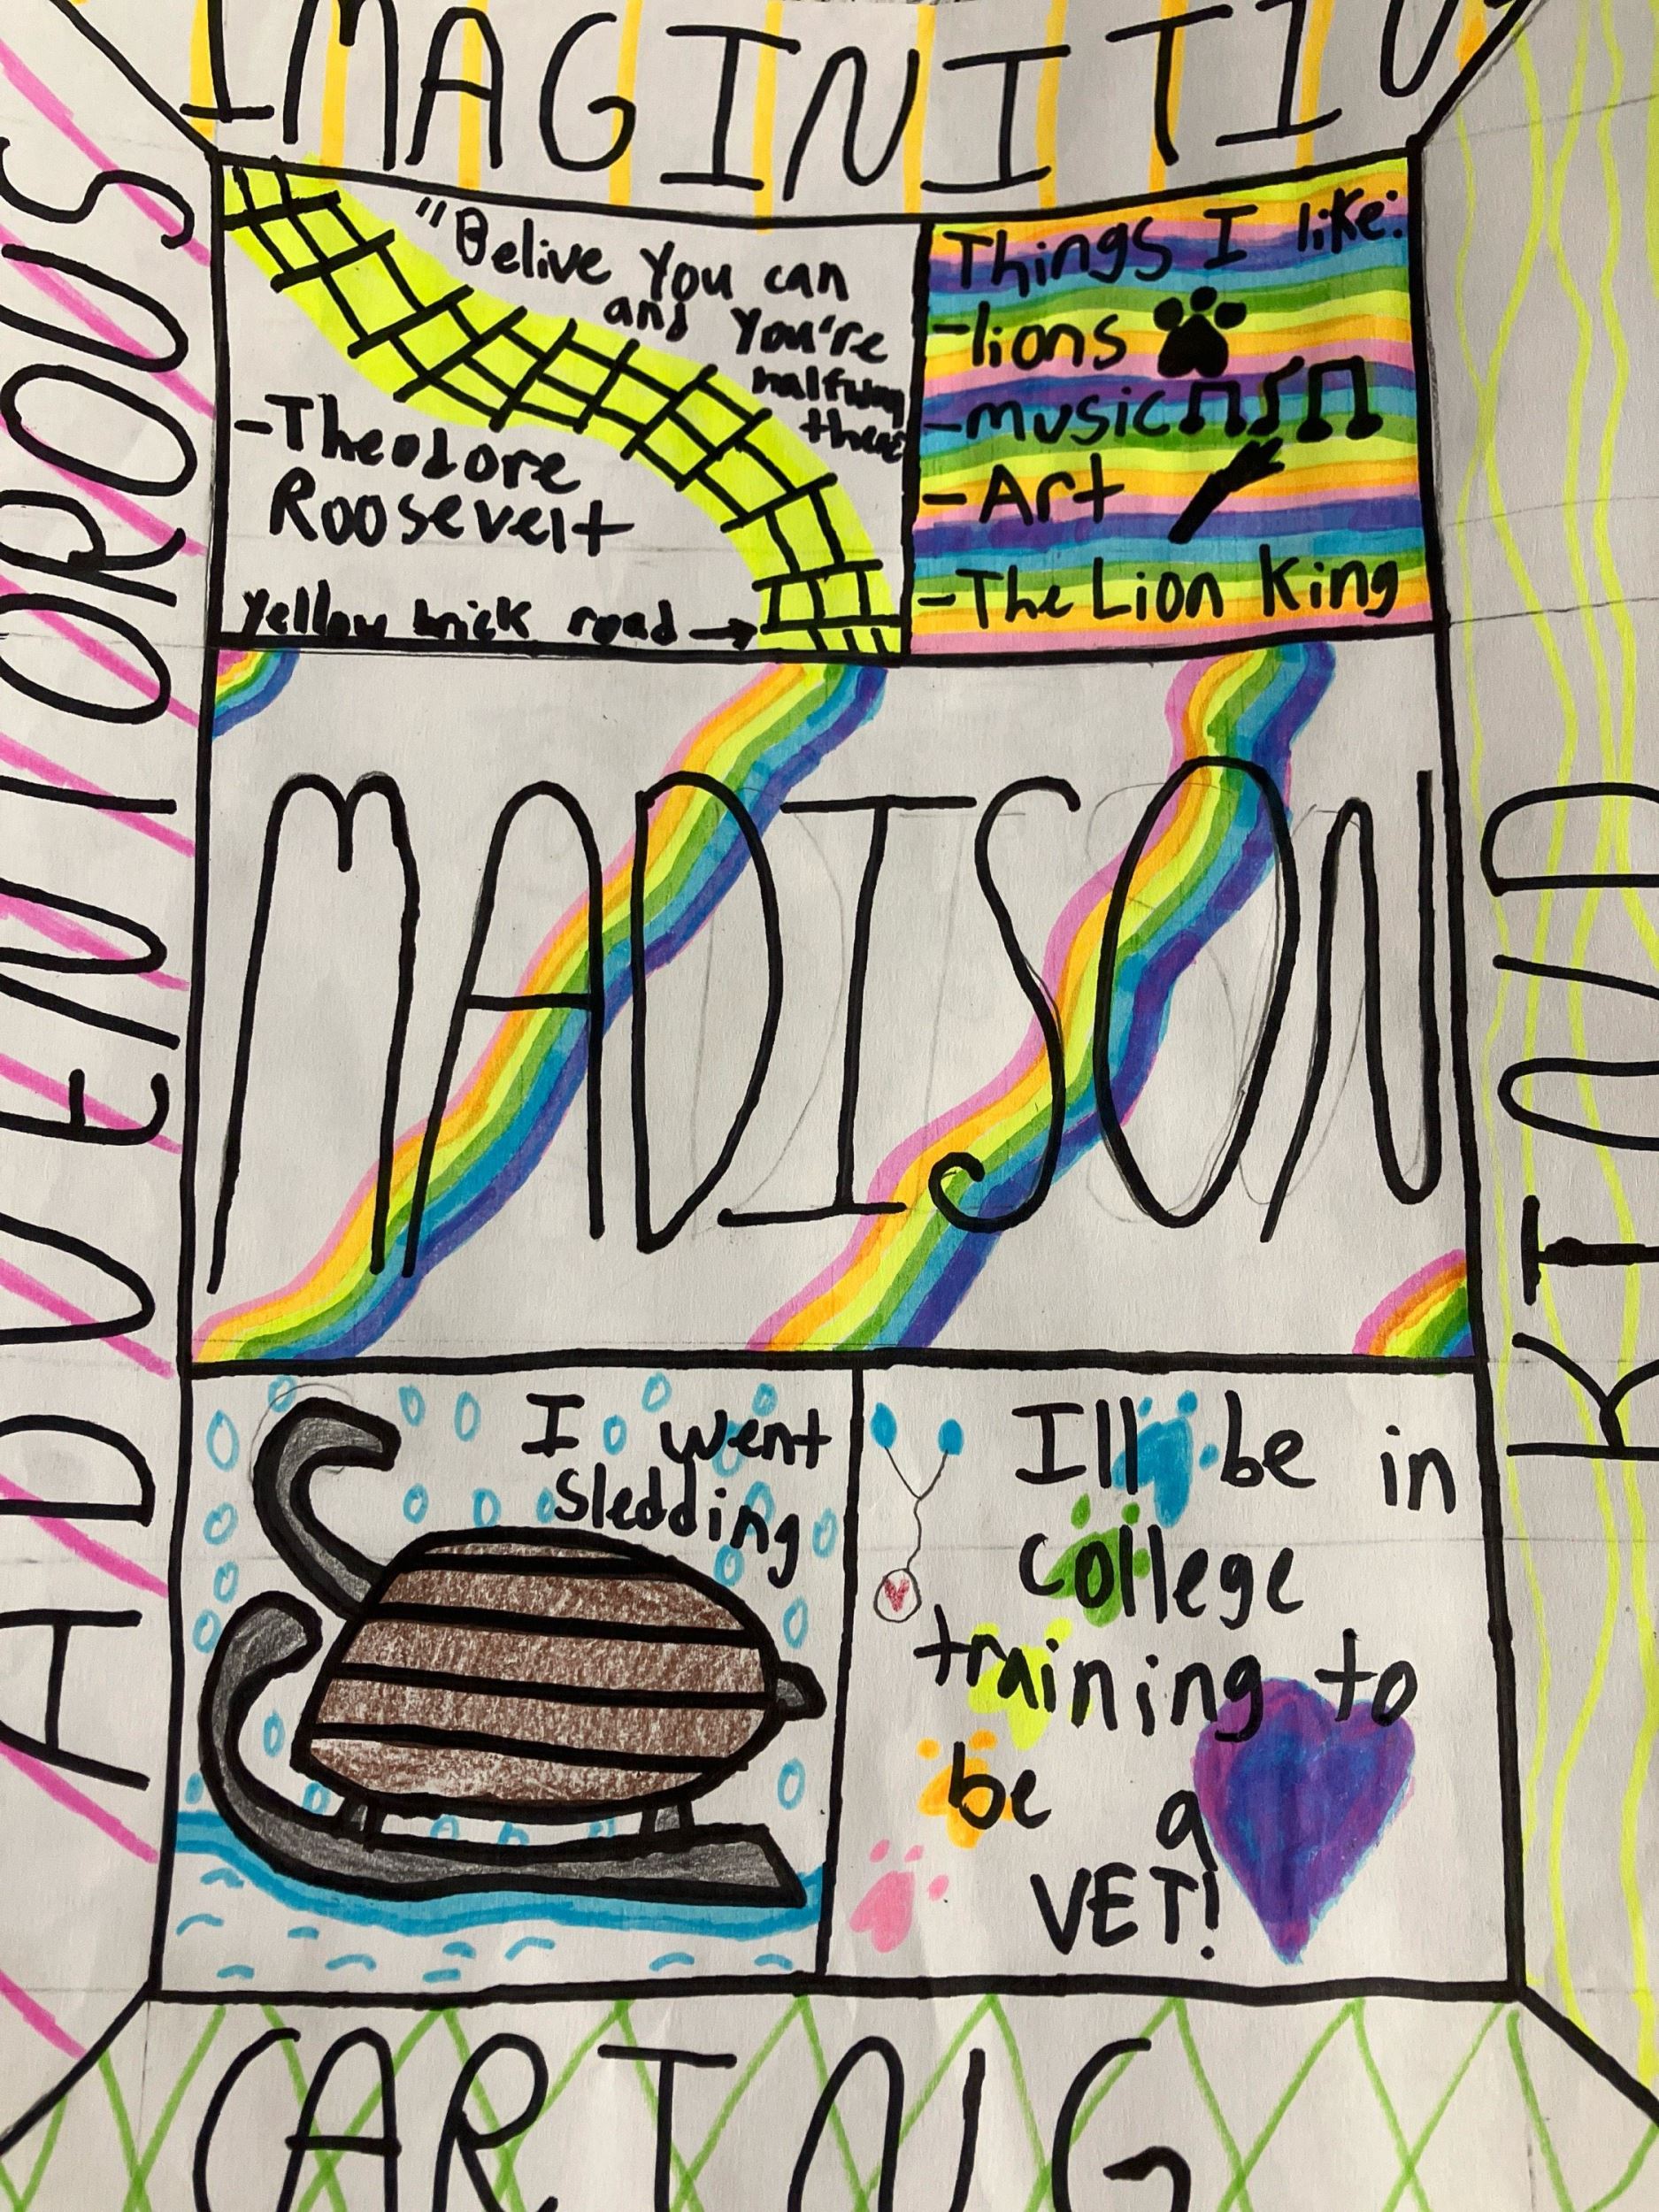 IMAGINITIV
"Belive You can
and You're
halfway
there
-Theodore
Roosevelt
Yellow brick road →
Things I like:
-lions
-music
-Art
-The Lion King
ADVENTOROUS
MADISON
KIND
I went
Sledding
Ill be in
college
training to
be a
VET!
CARING